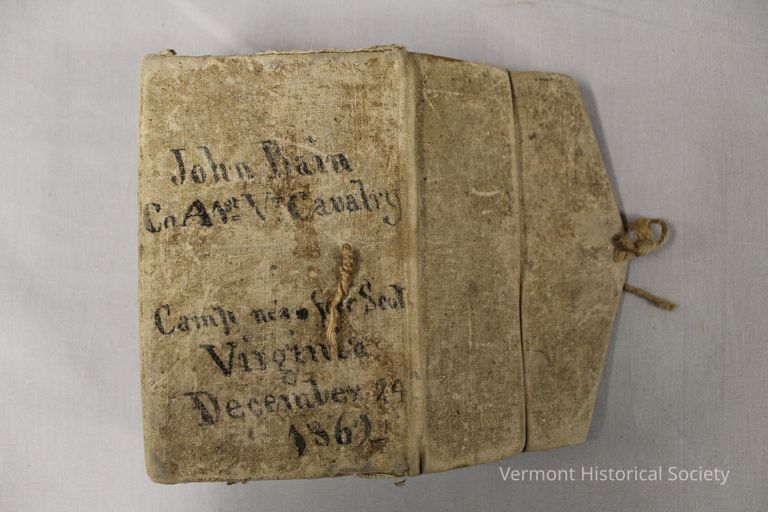 John Bain
Co A 1st Vt Cavalry
Camp near Scott
Virginia
December 24
1862
Vermont Historical Society